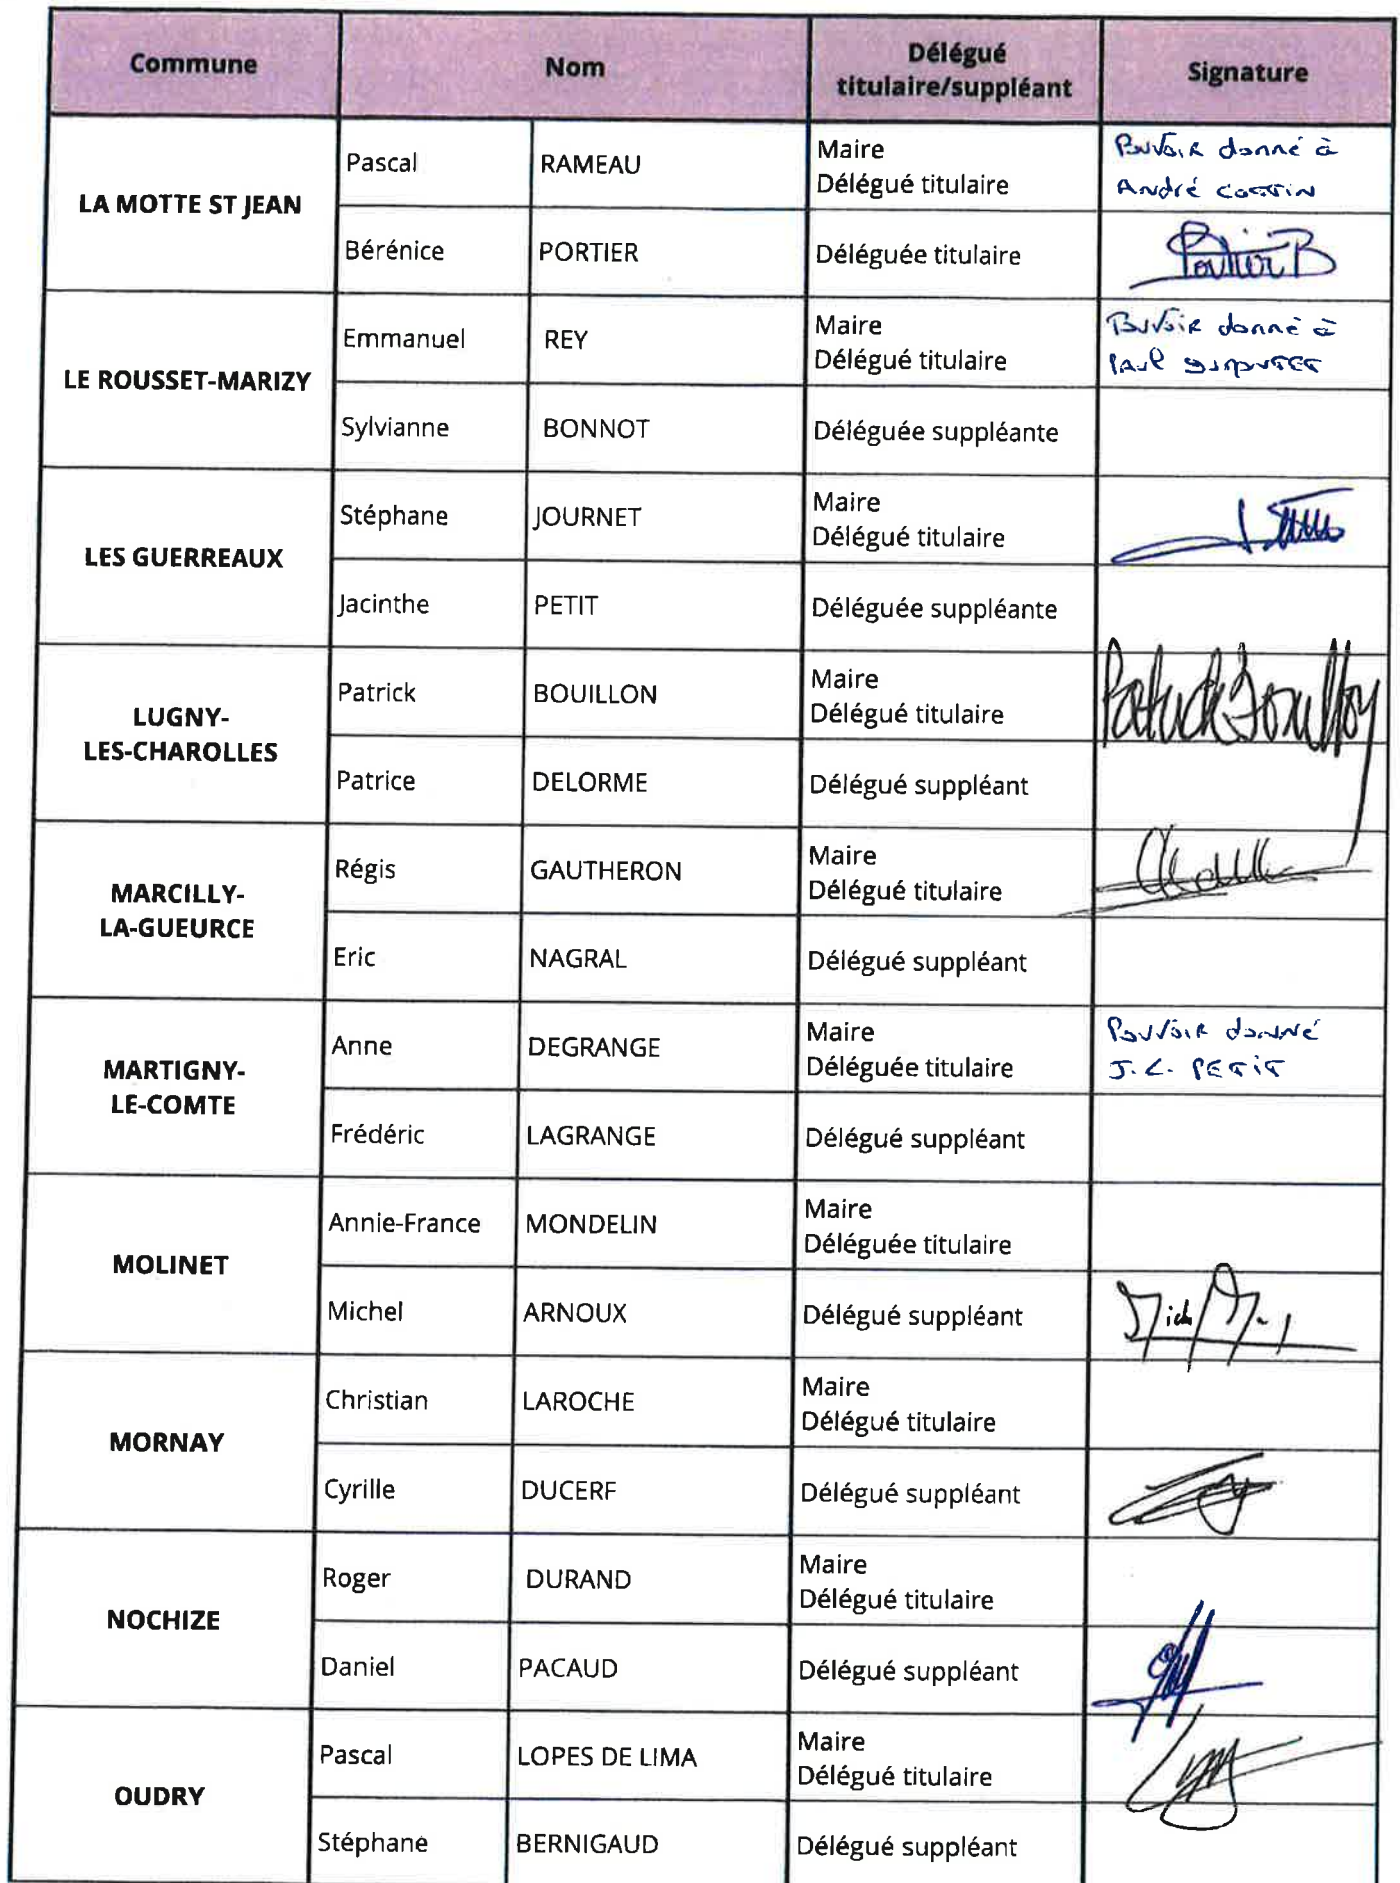 Commune Nom Délégué titulaire/suppléant Signature
LA MOTTE ST JEAN
Pascal RAMEAU Maire Délégué titulaire Pouvoir donné à
André
Bérénice PORTIER Déléguée titulaire Portier B
LE ROUSSET-MARIZY
Emmanuel REY Maire Délégué titulaire Pouvoir donné à
Paul
Sylvianne BONNOT Déléguée suppléante
LES GUERREAUX
Stéphane JOURNET Maire Délégué titulaire
Jacinthe PETIT Déléguée suppléante
LUGNY-
LES-CHAROLLES
Patrick BOUILLON Maire Délégué titulaire
Patrice DELORME Délégué suppléant
MARCILLY-
LA-GUEURCE
Régis GAUTHERON Maire Délégué titulaire
Eric NAGRAL Délégué suppléant
MARTIGNY-
LE-COMTE
Anne DEGRANGE Maire Déléguée titulaire Pouvoir donné
J.L. PETIT
Frédéric LAGRANGE Délégué suppléant
MOLINET
Annie-France MONDELIN Maire Déléguée titulaire
Michel ARNOUX Délégué suppléant
MORNAY
Christian LAROCHE Maire Délégué titulaire
Cyrille DUCERF Délégué suppléant
NOCHIZE
Roger DURAND Maire Délégué titulaire
Daniel PACAUD Délégué suppléant
OUDRY
Pascal LOPES DE LIMA Maire Délégué titulaire
Stéphane BERNIGAUD Délégué suppléant